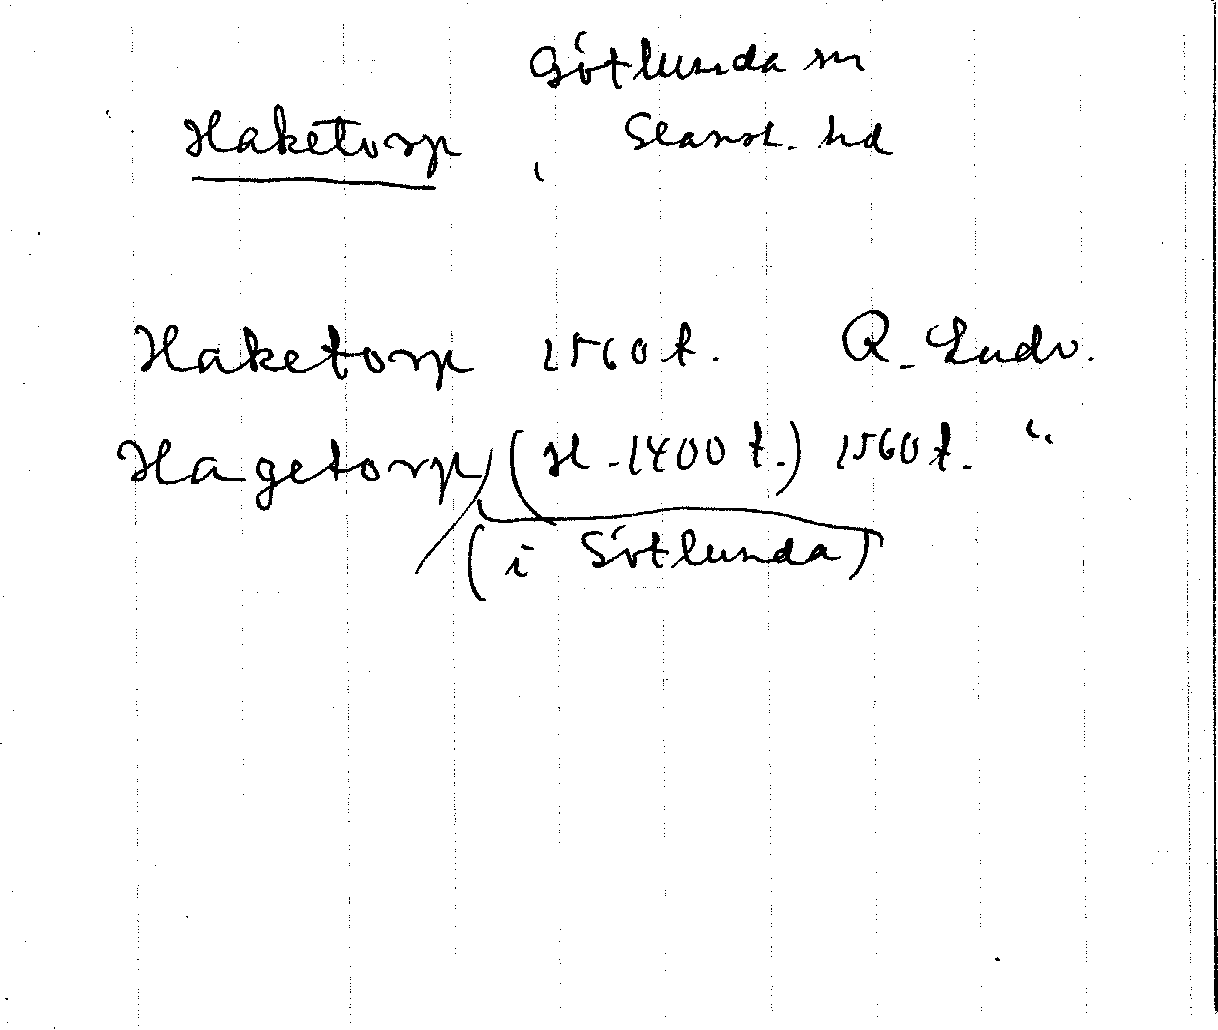 Götlunda sn
Haketorp, Glansh. hd
Haketorp 1560 t. R. Ludv.
Hagetorp (H. 1400 t.) 1560 t. "
(i Götlunda)